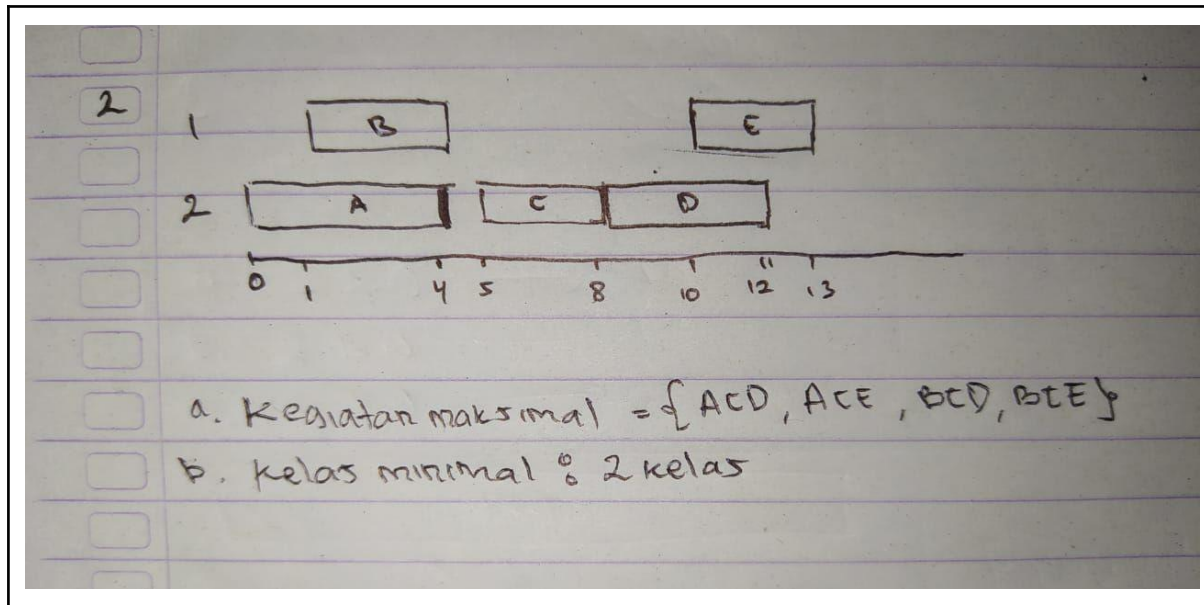 2
1 B E
2 A C D
0 1 4 5 8 10 12 13
a. Kegiatan maksimal = {ACD, ACE, BCD, BCE}
b. Kelas minimal : 2 kelas